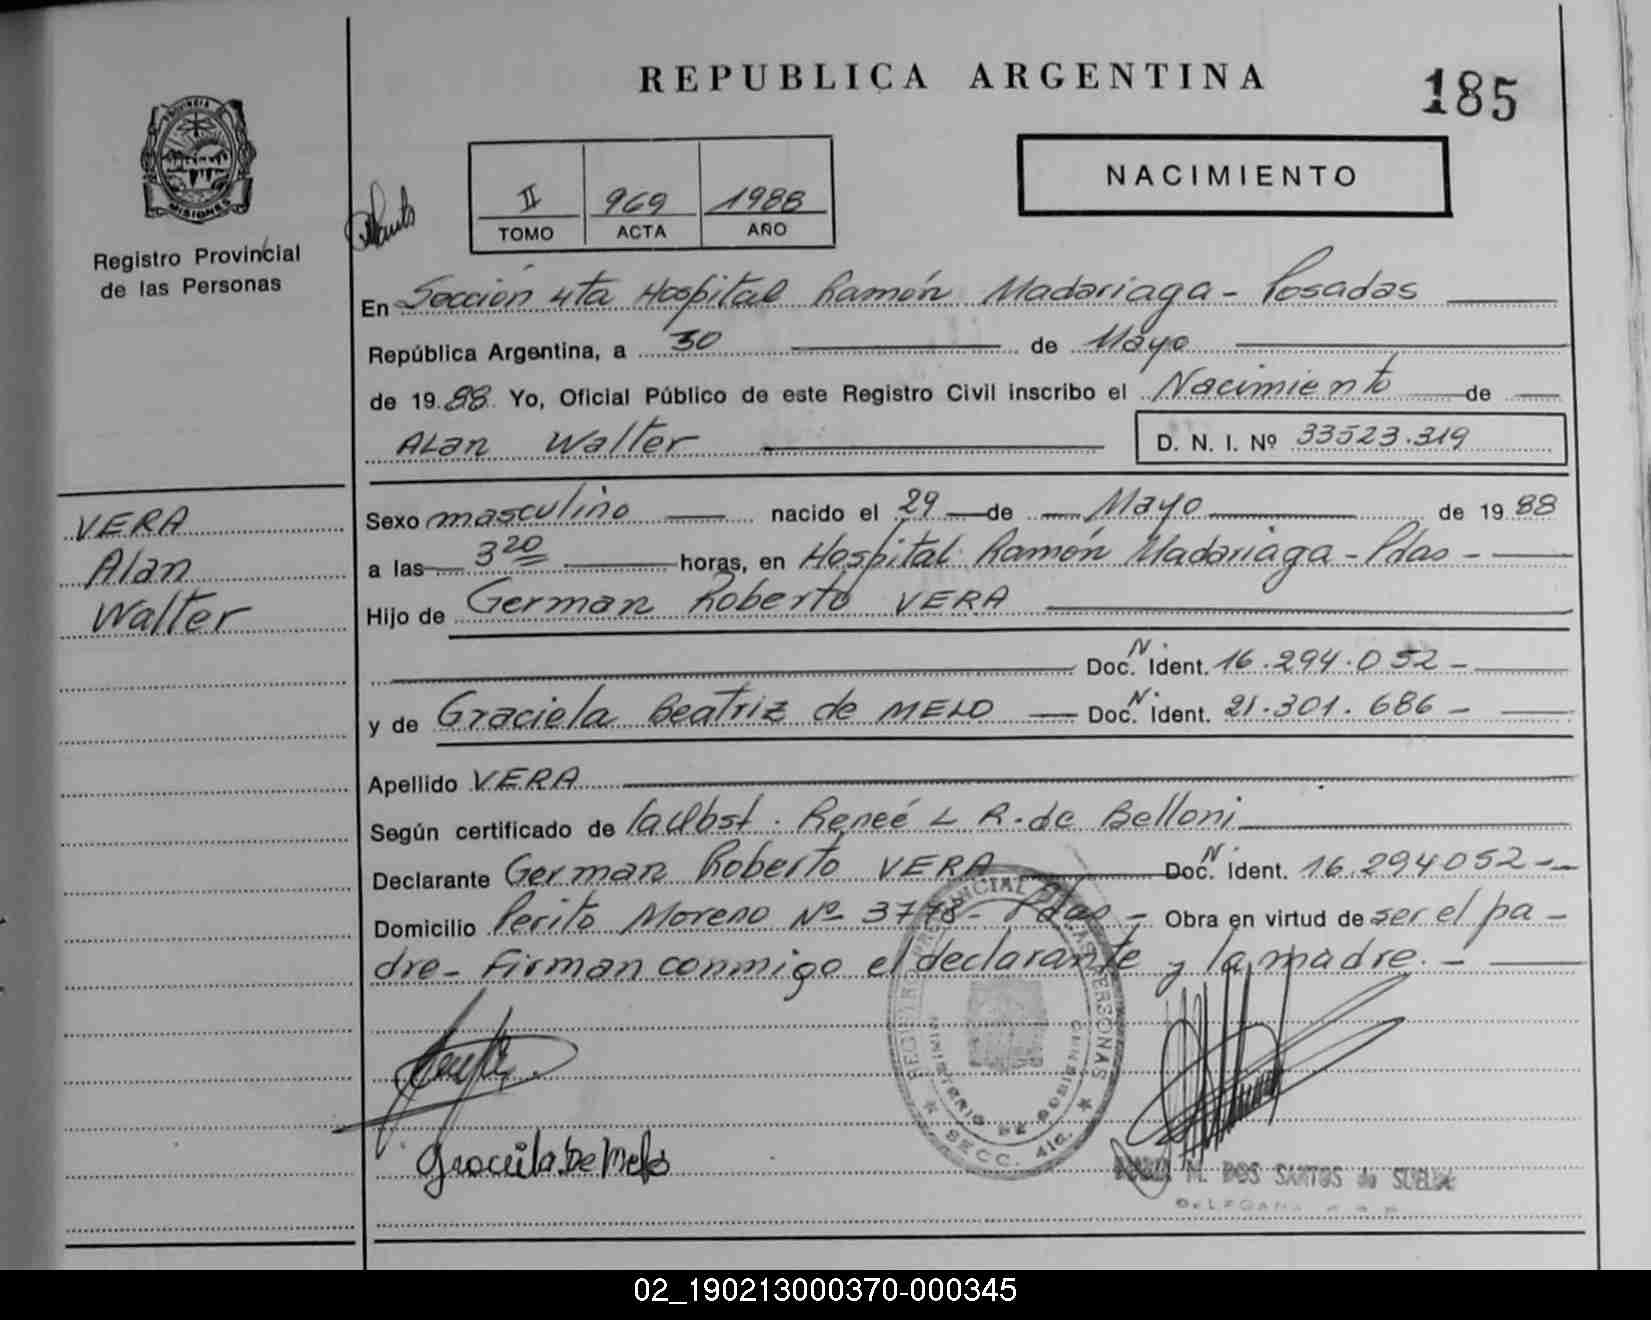 REPUBLICA ARGENTINA
185
NACIMIENTO
II 969 1988
TOMO ACTA AÑO
MISIONES
Registro Provincial
de las Personas
En Sección 4ta Hospital Ramón Madariaga - Posadas
República Argentina, a 30 de Mayo
de 1988 Yo, Oficial Público de este Registro Civil inscribo el Nacimiento de
ALan Walter D. N. I. Nº 33523.319
VERA
Alan
Walter
Sexo masculino nacido el 29 de Mayo de 1988
a las 3 20 horas, en Hospital Ramón Madariaga - Pdas -
Hijo de German Roberto VERA
Doc. N. Ident. 16.294.052 -
y de Graciela Beatriz de MELO Doc. N. Ident. 21.301.686 -
Apellido VERA
Según certificado de la Obst. Reneé L R. de Belloni
Declarante German Roberto VERA Doc. N. Ident. 16.294052 -
Domicilio Perito Moreno Nº 3778 - Pdas - Obra en virtud de ser el pa -
dre - Firman conmigo el declarante y la madre. -
REGISTRO PROVINCIAL DE LAS PERSONAS
MINISTERIO DE GOBIERNO
SECC. 4ta.
Graciela De Melo
M. DOS SANTOS de
02_190213000370-000345